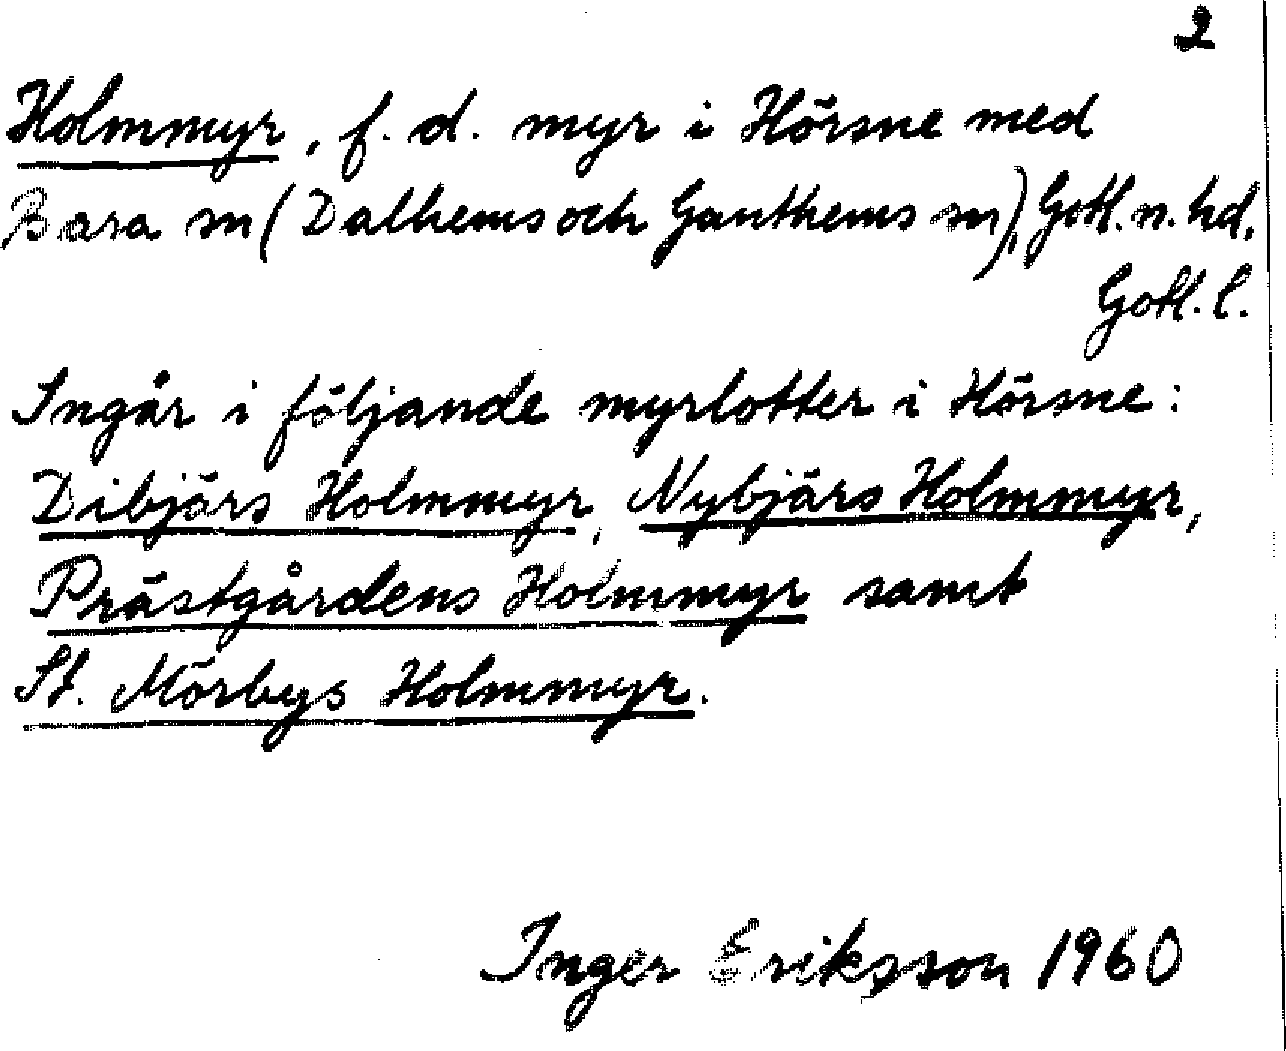 2
Holmmyr, f. d. myr i Hörsne med
Bara sn (Dalhems och Ganthems sn), Gotl. n. hd,
Gotl. l.
Ingår i följande myrlotter i Hörsne:
Dibjärs Holmmyr, Nybjärs Holmmyr,
Prästgårdens Holmmyr samt
St. Mörbys Holmmyr.
Inger Eriksson 1960